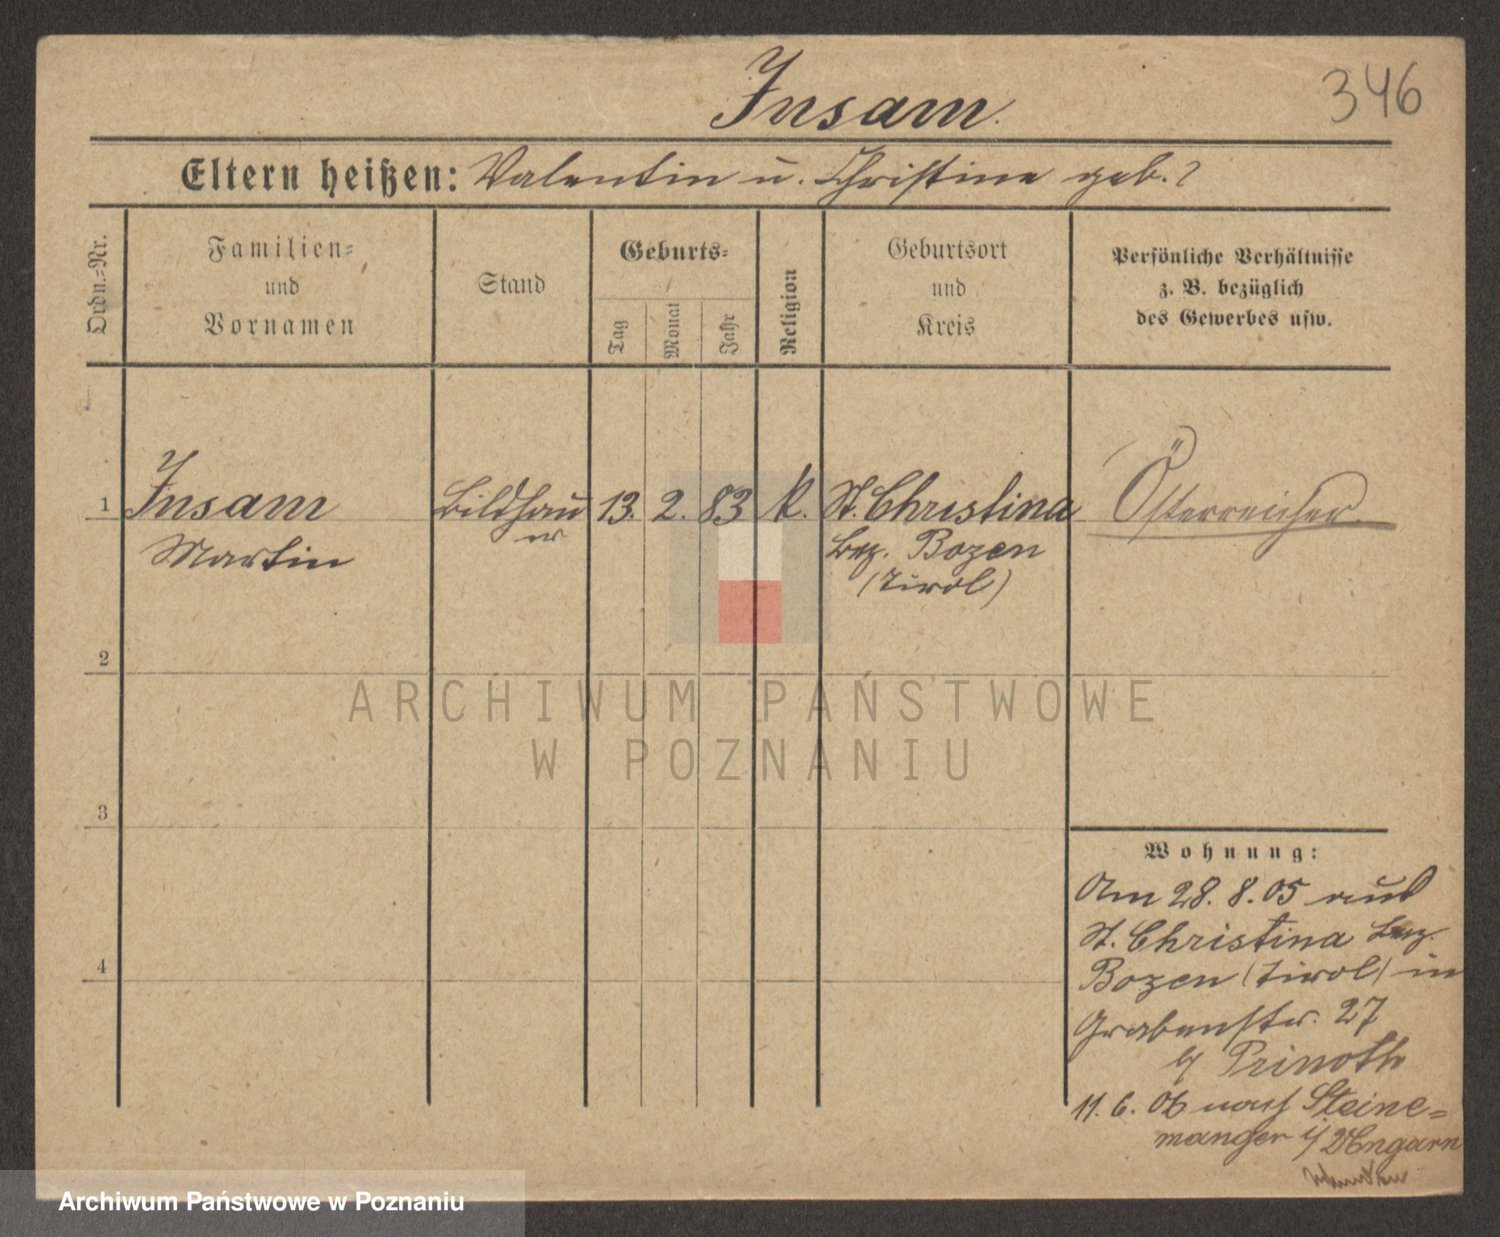 Insam.
346
Eltern heißen: Valentin u. Christine geb. ?
Ordn.=Nr.
Familien=
und
Vornamen
Stand
Geburts=
Tag
Monat
Jahr
Religion
Geburtsort
und
Kreis
Persönliche Verhältnisse
z. B. bezüglich
des Gewerbes usw.
1 Insam Bildhau 13. 2. 83 k. St. Christina Österreicher.
Martin er Bez. Bozen
(Tirol)
2
ARCHIWUM PAŃSTWOWE
W POZNANIU
3
Wohnung:
Am 28. 8. 05 aus
St. Christina Bez.
4
Bozen (Tirol) in
Grabenstr. 27
b/ Prinoth
11. 6. 06 nach Steine=
manger i/ Ungarn
Archiwum Państwowe w Poznaniu